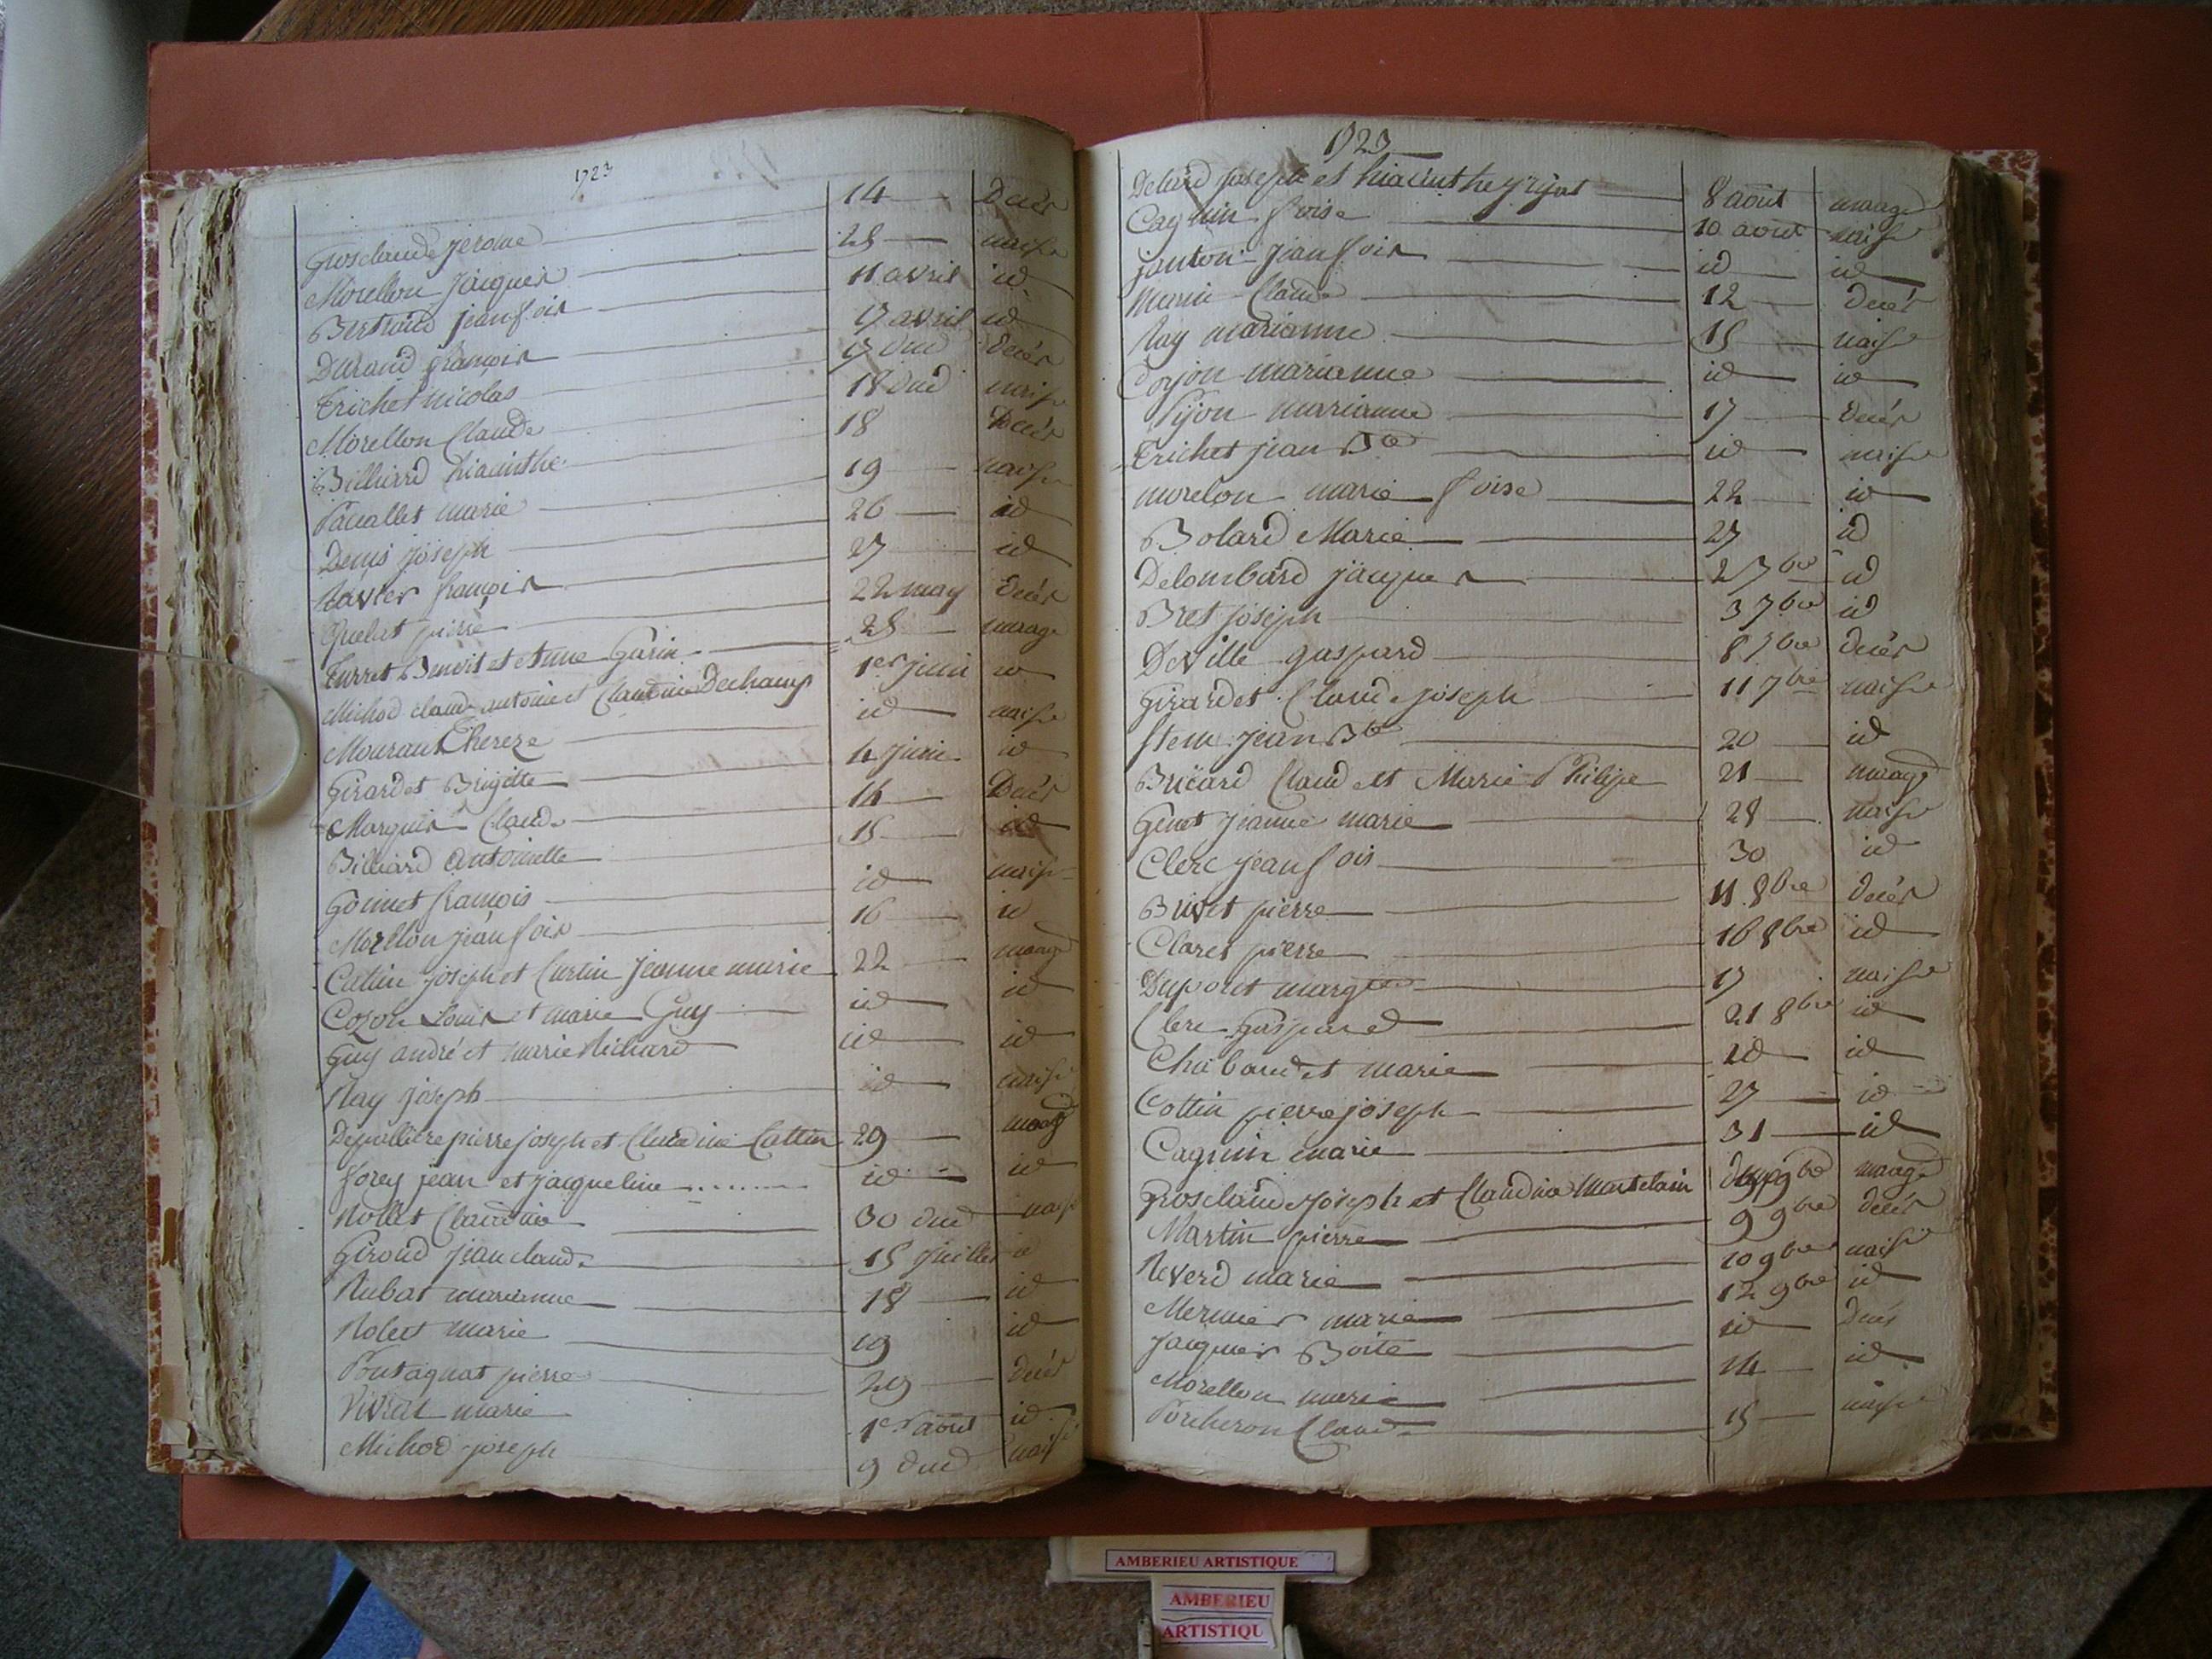 1723
Grosclaude jerome 14 Decès
Morellon Jacques 28 naisse
Bertrand jean fois 11 avril id
Durand françois 17 avril id
Trichet nicolas 17 dud decès
Morellon Claude 18 dud naisse
Billiard hiacinthe 18 Decès
marie 19 naisse
Denis joseph 26 id
Ravier françois 27 id
Quelat pierre 22 may decès
Turret Benoit et Anne Garin 28 mage
Michod claude antoine et Claudine Dechamp 1er juin id
Mouraux Thereze id naisse
Girardet Brigitte 4 juin id
Marquis Claude 14 Decès
Billiard Antoinette 15 id
Goinet françois id naisse
Morellon jean fois 16 id
Cattin joseph et Curtin jeanne marie 22 mage
Cozon Louis et marie Guy id id
Guy andré et marie Richard id id
Ray joseph id naisse
Depallière pierre joseph et Claudine Cattin 29 mage
forey jean et jacqueline ........ id id
Rollet Claudine 30 dud naisse
Giroud jean claude 15 juillet id
Rubat marianne 18 id
Rolet marie 19 id
Pontagnat pierre 29 decès
Vivrat marie 1er aout id
Michod joseph 9 dud naisse
1723
joseph et hiacinthe 8 aout mage
Cagnin foise 10 aout naisse
janton jean fois id id
Marin Claude 12 decès
Ray marianne 15 naisse
marianne id id
Pijon marianne 17 decès
Trichet jean Bte id naisse
morelon marie foise 22 id
Bolard Marie 27 id
Delombard jacques 2 7bre id
Bret joseph 3 7bre id
Deville gaspard 8 7bre decès
Girardet Claude joseph 11 7bre naisse
jean Bte 20 id
Bricard Claude et Marie Philipe 21 mage
Genet jeanne marie 28 naisse
Clerc jean fois 30 id
Brivet pierre 11 8bre decès
Claret pierre 16 8bre id
Duport margte 17 naisse
Clerc Gaspard 21 8bre id
Chaboudet marie id id
Cottin pierre joseph 27 id
Cagnin marie 31 id
Grosclaude joseph et Claudine Martelain 9bre mage
Martin pierre 9 9bre decès
Reverd marie 10 9bre naisse
Mermier marie 12 9bre id
Jacquier Boite id decès
Morellon marie 14 id
Porcheron Claude 15 naisse
AMBERIEU ARTISTIQUE
AMBERIEU
ARTISTIQU